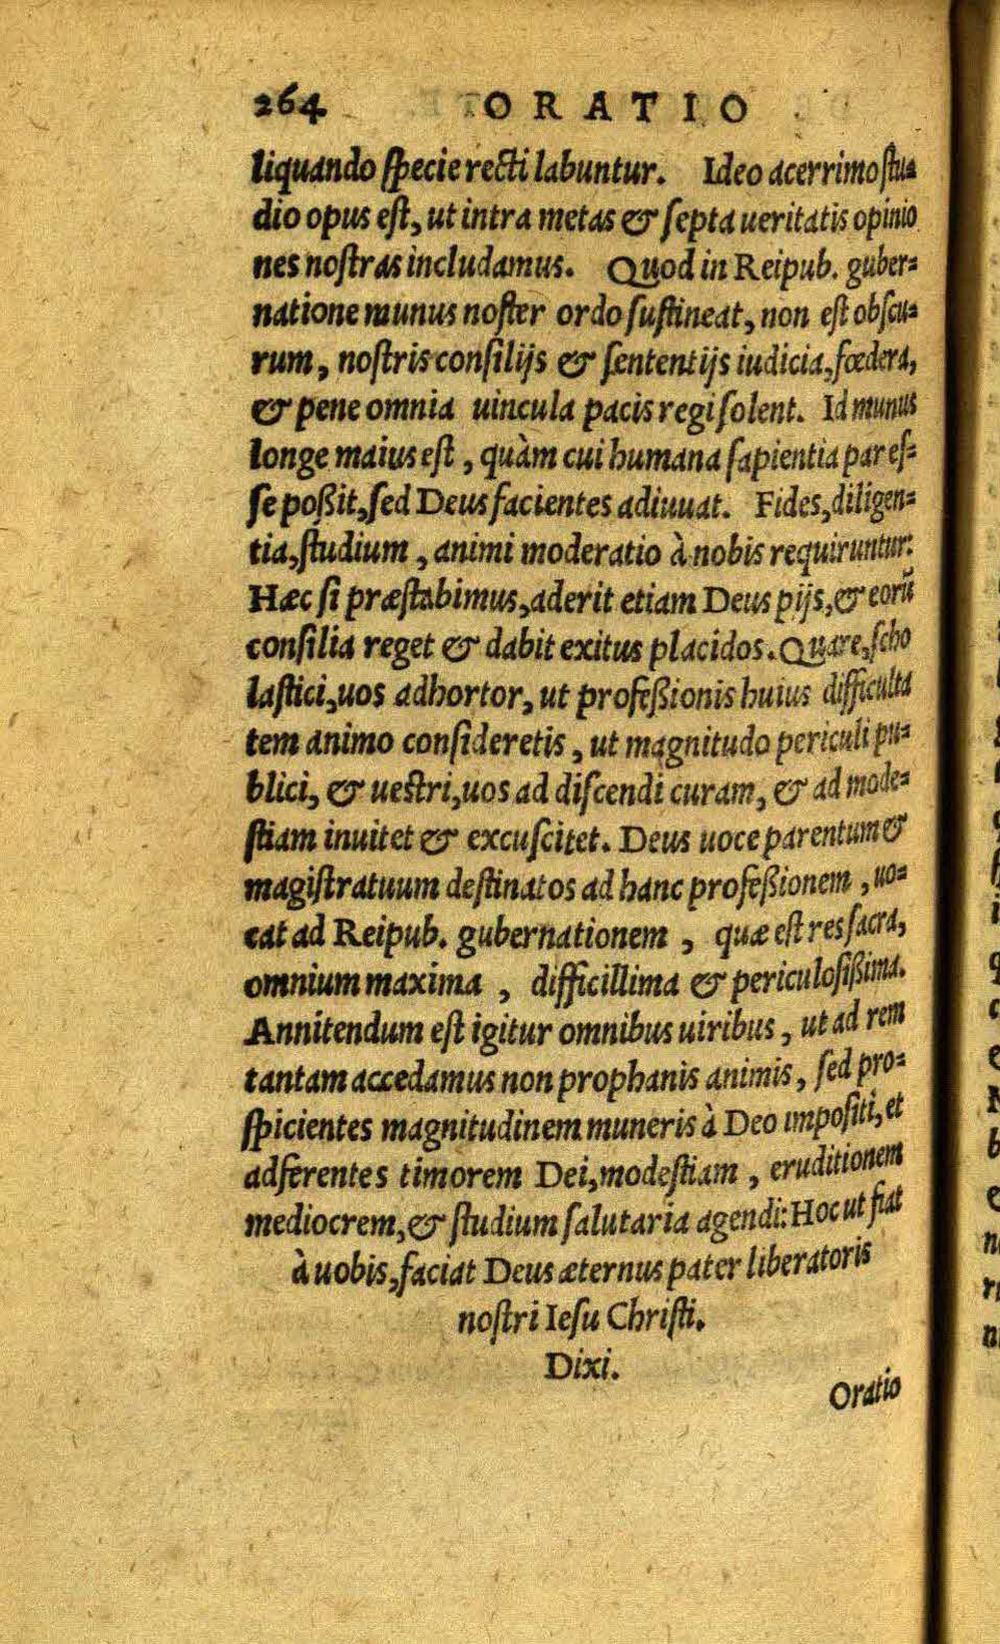 264 ORATIO
liquando ſpecie recti labuntur. Ideo acerrimo ſtu⸗
dio opus eſt, ut intra metas & ſepta ueritatis opinio
nes noſtras includamus. Quod in Reipub. guber⸗
natione munus noſter ordo ſuſtineat, non eſt obſcu⸗
rum, noſtris conſilijs & ſententijs iudicia, fœdera,
& pene omnia uincula pacis regi ſolent. Id munus
longe maius eſt, quàm cui humana ſapientia par eſ⸗
ſe poßit, ſed Deus facientes adiuuat. Fides, diligen⸗
tia, ſtudium, animi moderatio à nobis requiruntur:
Hæc ſi præſtabimus, aderit etiam Deus pijs, & eorũ
conſilia reget & dabit exitus placidos. Quare, ſcho
laſtici, uos adhortor, ut profeßionis huius difficulta
tem animo conſideretis, ut magnitudo periculi pu⸗
blici, & ueſtri, uos ad diſcendi curam, & ad mode⸗
ſtiam inuitet & excuſcitet. Deus uoce parentum &
magiſtratuum deſtinatos ad hanc profeßionem, uo⸗
cat ad Reipub. gubernationem, quæ eſt res ſacra,
omnium maxima, difficillima & periculoſißima.
Annitendum eſt igitur omnibus uiribus, ut ad rem
tantam accedamus non prophanis animis, ſed pro⸗
ſpicientes magnitudinem muneris à Deo impoſiti, et
adferentes timorem Dei, modeſtiam, eruditionem
mediocrem, & ſtudium ſalutaria agendi: Hoc ut fiat
à uobis, faciat Deus æternus pater liberatoris
noſtri Ieſu Chriſti.
Dixi.
Oratio